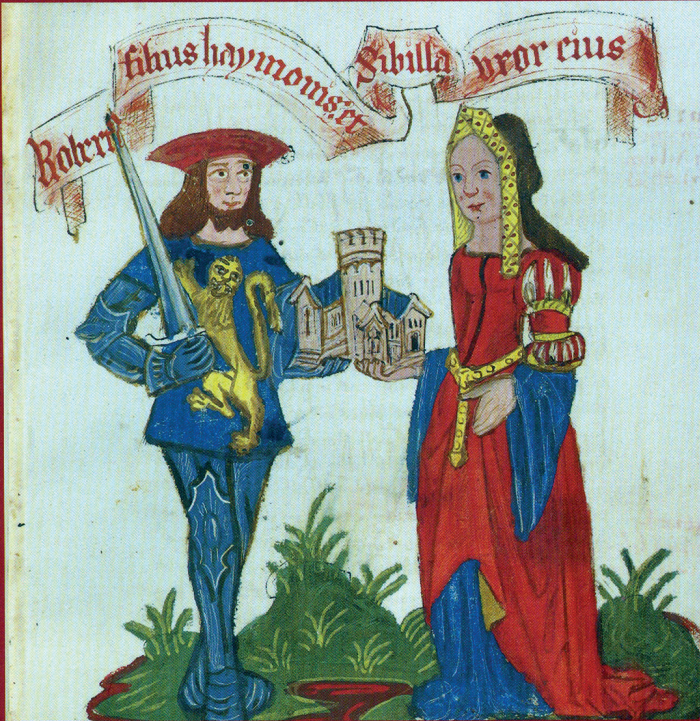 Robert filius haymonis: et Sibilla uxor eius